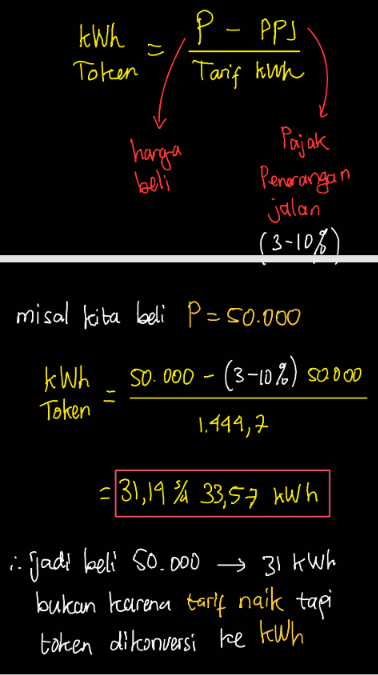 kWh Token = P - PPJ / Tarif kWh
harga beli
Pajak Penerangan jalan (3-10%)
misal kita beli P = 50.000
kWh Token = 50.000 - (3-10%) 50.000 / 1.444,7
= 31,19 s/d 33,57 kWh
∴ jadi beli 50.000 → 31 kWh
bukan karena tarif naik tapi
token dikonversi ke kWh